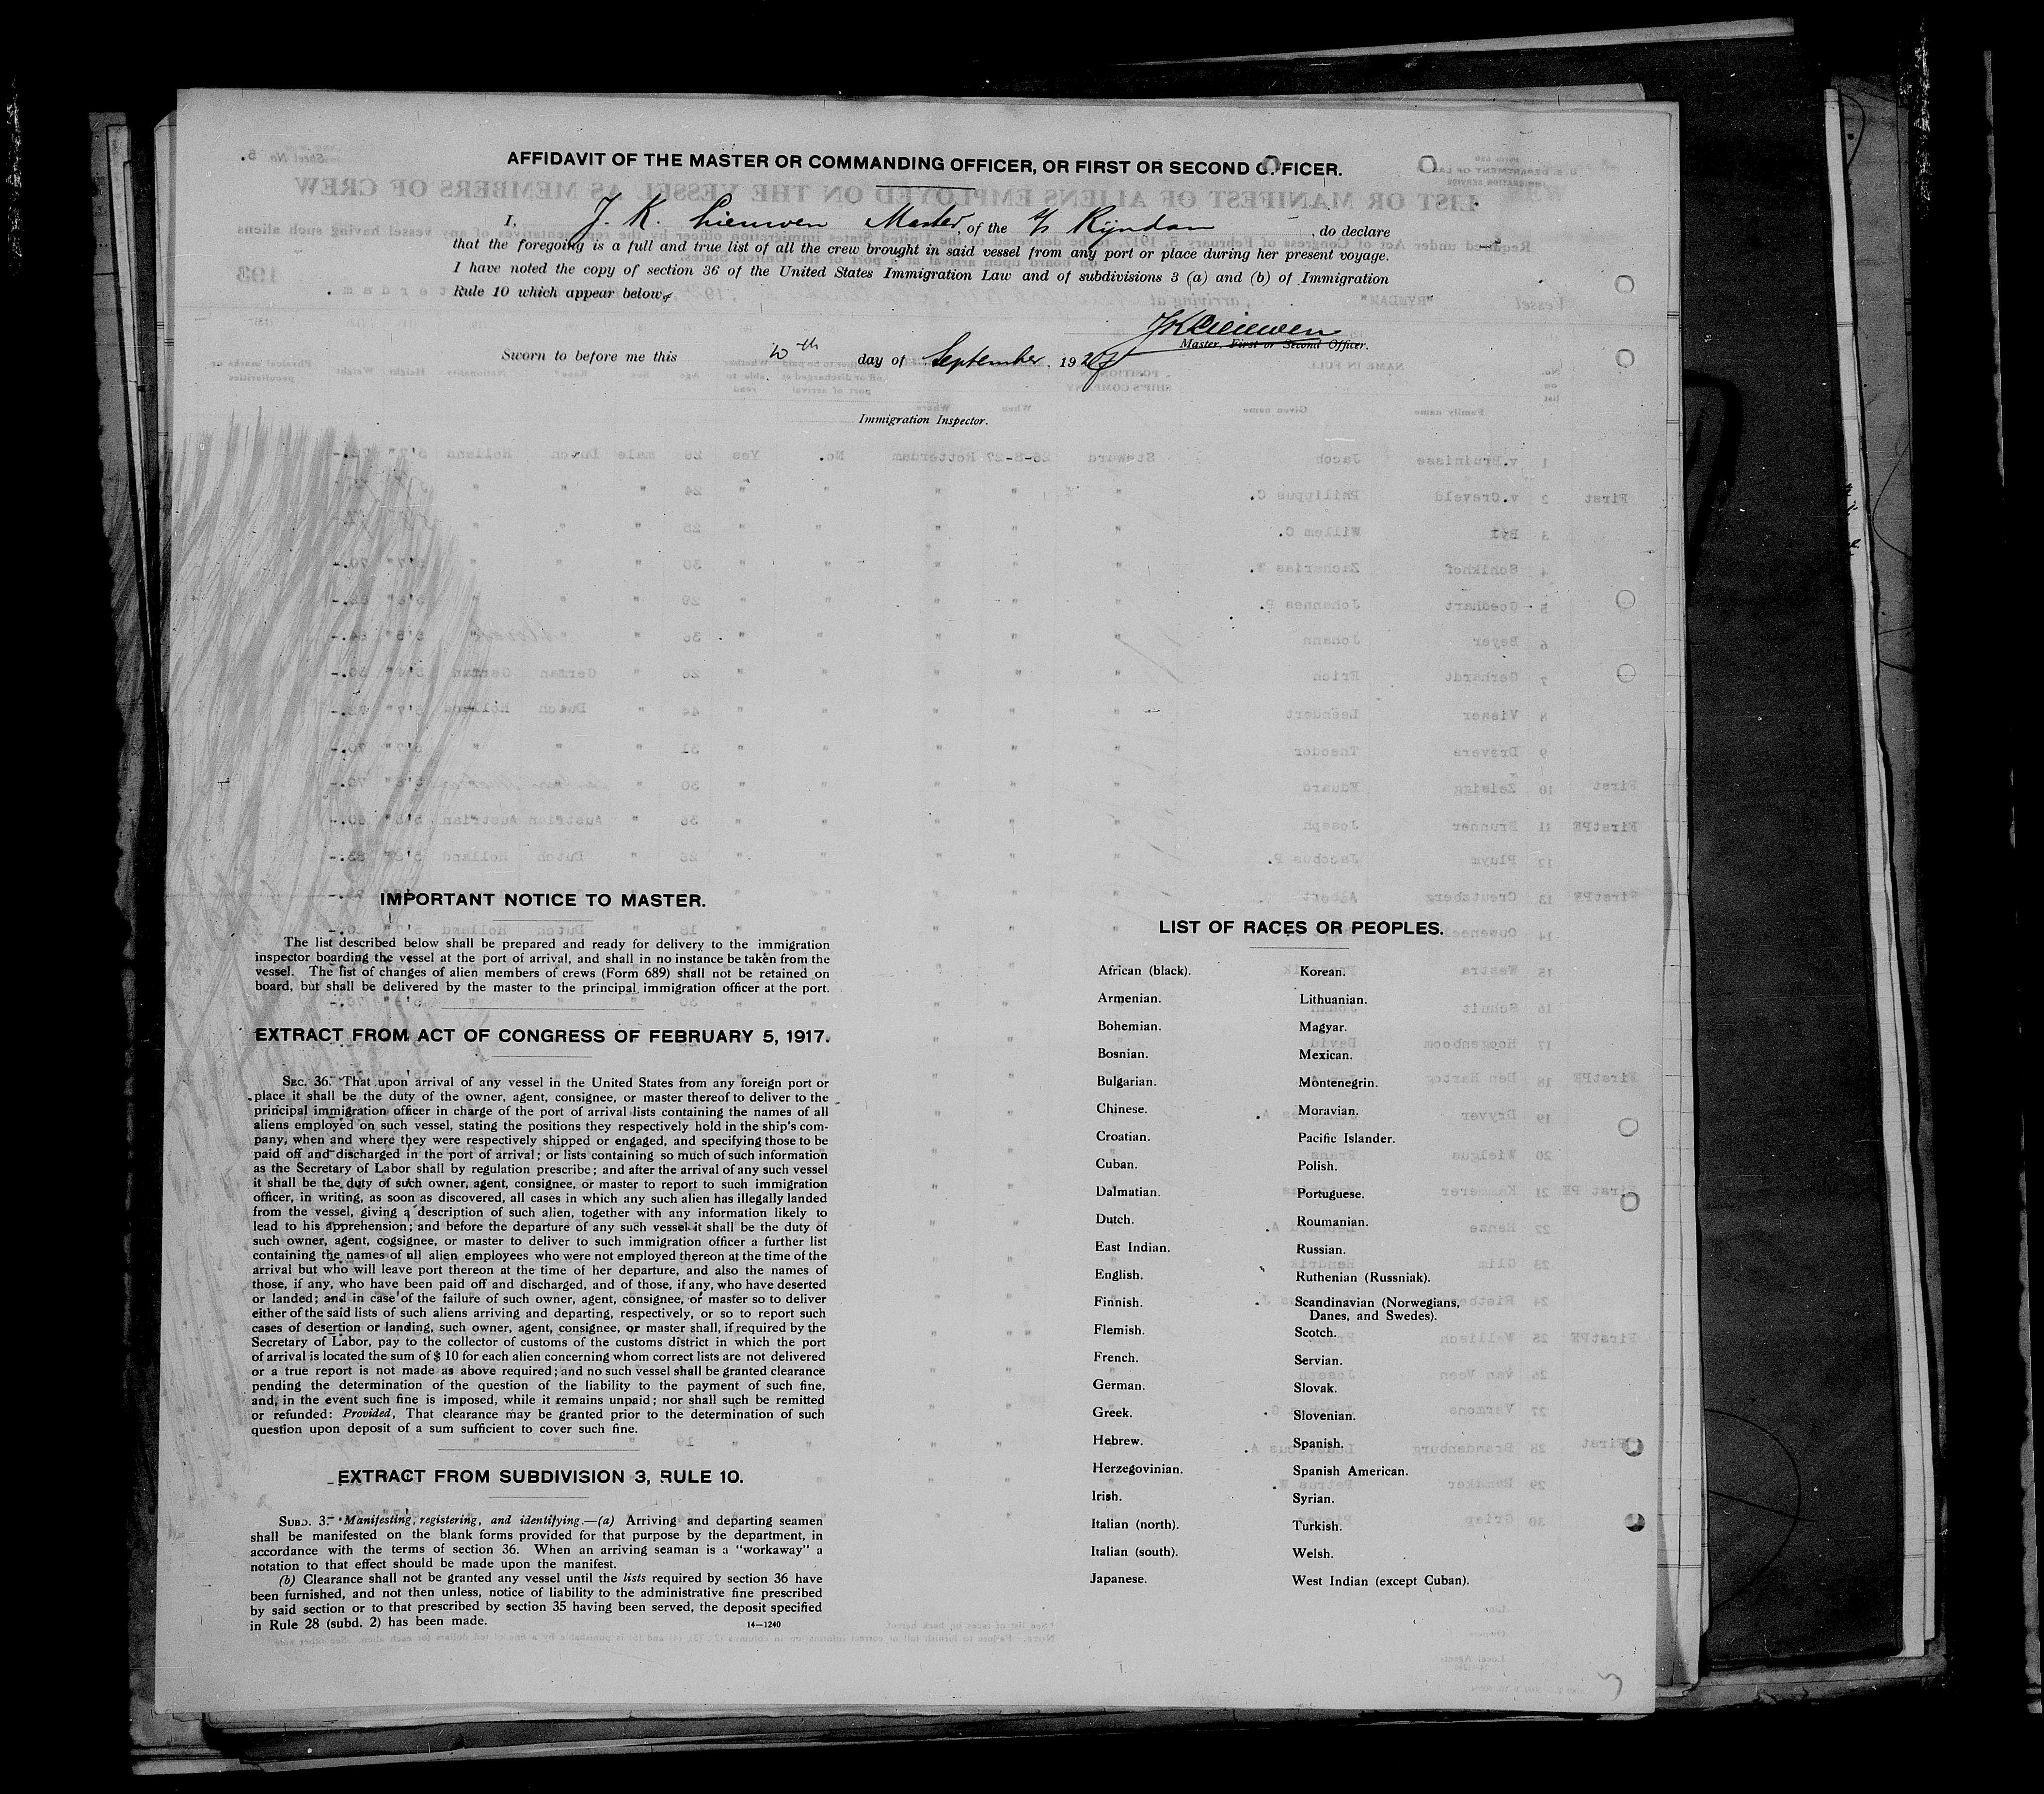 AFFIDAVIT OF THE MASTER OR COMMANDING OFFICER, OR FIRST OR SECOND OFFICER.
I, J. K. Lieuwen Master of the Ryndam , do declare
that the foregoing is a full and true list of all the crew brought in said vessel from any port or place during her present voyage.
I have noted the copy of section 36 of the United States Immigration Law and of subdivisions 3 (a) and (b) of Immigration
Rule 10 which appear below.
JKLieuwen
Master, First or Second Officer.
Sworn to before me this day of September, 192
Immigration Inspector.
IMPORTANT NOTICE TO MASTER.
The list described below shall be prepared and ready for delivery to the immigration
inspector boarding the vessel at the port of arrival, and shall in no instance be taken from the
vessel. The list of changes of alien members of crews (Form 689) shall not be retained on
board, but shall be delivered by the master to the principal immigration officer at the port.
EXTRACT FROM ACT OF CONGRESS OF FEBRUARY 5, 1917.
SEC. 36. That upon arrival of any vessel in the United States from any foreign port or
place it shall be the duty of the owner, agent, consignee, or master thereof to deliver to the
principal immigration officer in charge of the port of arrival lists containing the names of all
aliens employed on such vessel, stating the positions they respectively hold in the ship's com-
pany, when and where they were respectively shipped or engaged, and specifying those to be
paid off and discharged in the port of arrival; or lists containing so much of such information
as the Secretary of Labor shall by regulation prescribe; and after the arrival of any such vessel
it shall be the duty of such owner, agent, consignee, or master to report to such immigration
officer, in writing, as soon as discovered, all cases in which any such alien has illegally landed
from the vessel, giving a description of such alien, together with any information likely to
lead to his apprehension; and before the departure of any such vessel it shall be the duty of
such owner, agent, cogsignee, or master to deliver to such immigration officer a further list
containing the names of all alien employees who were not employed thereon at the time of the
arrival but who will leave port thereon at the time of her departure, and also the names of
those, if any, who have been paid off and discharged, and of those, if any, who have deserted
or landed; and in case of the failure of such owner, agent, consignee, or master so to deliver
either of the said lists of such aliens arriving and departing, respectively, or so to report such
cases of desertion or landing, such owner, agent, consignee, or master shall, if required by the
Secretary of Labor, pay to the collector of customs of the customs district in which the port
of arrival is located the sum of $ 10 for each alien concerning whom correct lists are not delivered
or a true report is not made as above required; and no such vessel shall be granted clearance
pending the determination of the question of the liability to the payment of such fine,
and, in the event such fine is imposed, while it remains unpaid; nor shall such be remitted
or refunded: Provided, That clearance may be granted prior to the determination of such
question upon deposit of a sum sufficient to cover such fine.
EXTRACT FROM SUBDIVISION 3, RULE 10.
SUBD. 3. Manifesting, registering, and identifying.—(a) Arriving and departing seamen
shall be manifested on the blank forms provided for that purpose by the department, in
accordance with the terms of section 36. When an arriving seaman is a "workaway" a
notation to that effect should be made upon the manifest.
(b) Clearance shall not be granted any vessel until the lists required by section 36 have
been furnished, and not then unless, notice of liability to the administrative fine prescribed
by said section or to that prescribed by section 35 having been served, the deposit specified
in Rule 28 (subd. 2) has been made.
14—1240
LIST OF RACES OR PEOPLES.
African (black).
Armenian.
Bohemian.
Bosnian.
Bulgarian.
Chinese.
Croatian.
Cuban.
Dalmatian.
Dutch.
East Indian.
English.
Finnish.
Flemish.
French.
German.
Greek.
Hebrew.
Herzegovinian.
Irish.
Italian (north).
Italian (south).
Japanese.
Korean.
Lithuanian.
Magyar.
Mexican.
Montenegrin.
Moravian.
Pacific Islander.
Polish.
Portuguese.
Roumanian.
Russian.
Ruthenian (Russniak).
Scandinavian (Norwegians,
Danes, and Swedes).
Scotch.
Servian.
Slovak.
Slovenian.
Spanish.
Spanish American.
Syrian.
Turkish.
Welsh.
West Indian (except Cuban).